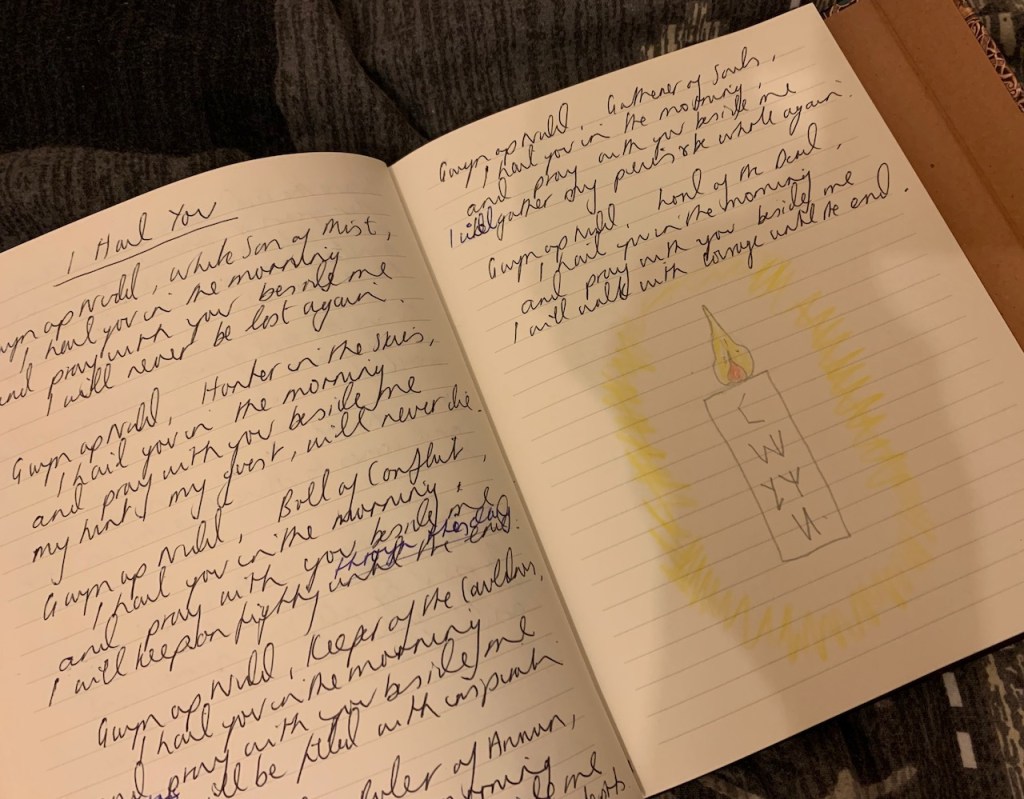 I Hail You
Gwyn ap Nudd, White Son of Mist,
I hail you in the morning
and pray with you beside me
I will never be lost again.
Gwyn ap Nudd, Hunter in the Skies,
I hail you in the morning
and pray with you beside me
my hunt, my quest, will never die.
Gwyn ap Nudd, Bull of Conflict,
I hail you in the morning,
and pray with you beside me
through the
I will keep on fighting until the end.
Gwyn ap Nudd, Keeper of the Cauldron,
I hail you in the morning
and pray with you beside me
will be filled with
Ruler of Annwn,
morning
me
Gwyn ap Nudd, Gatherer of Souls,
I hail you in the morning,
and pray with you beside me
I will gather my whole again.
Gwyn ap Nudd, Lord of the Dead,
I hail you in the morning
and pray with you beside me
I will walk with courage until the end.
W